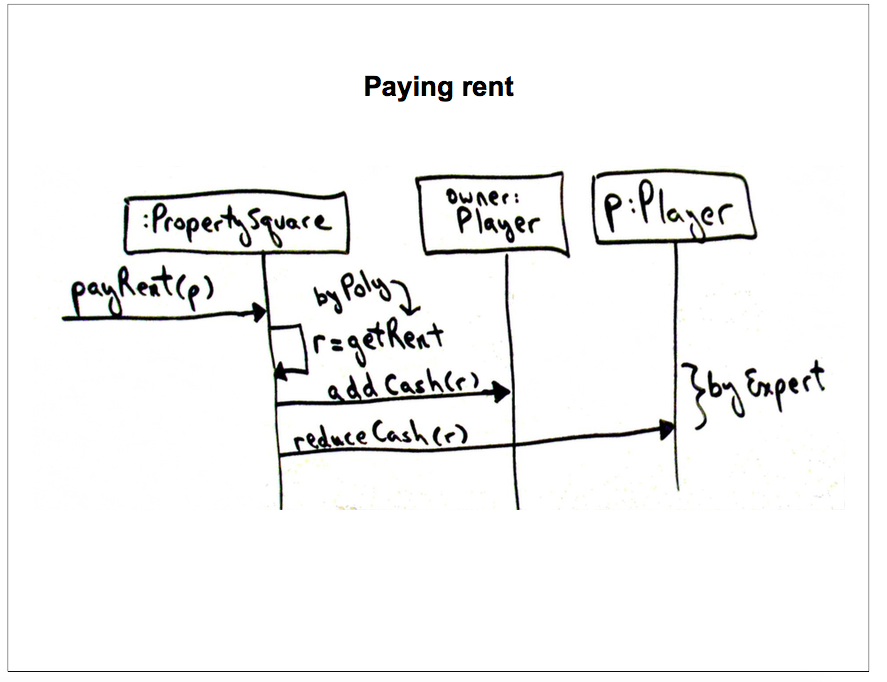 Paying rent
:PropertySquare
owner:
Player
p:Player
payRent(p)
by Poly
r=getRent
addCash(r)
} by Expert
reduceCash(r)